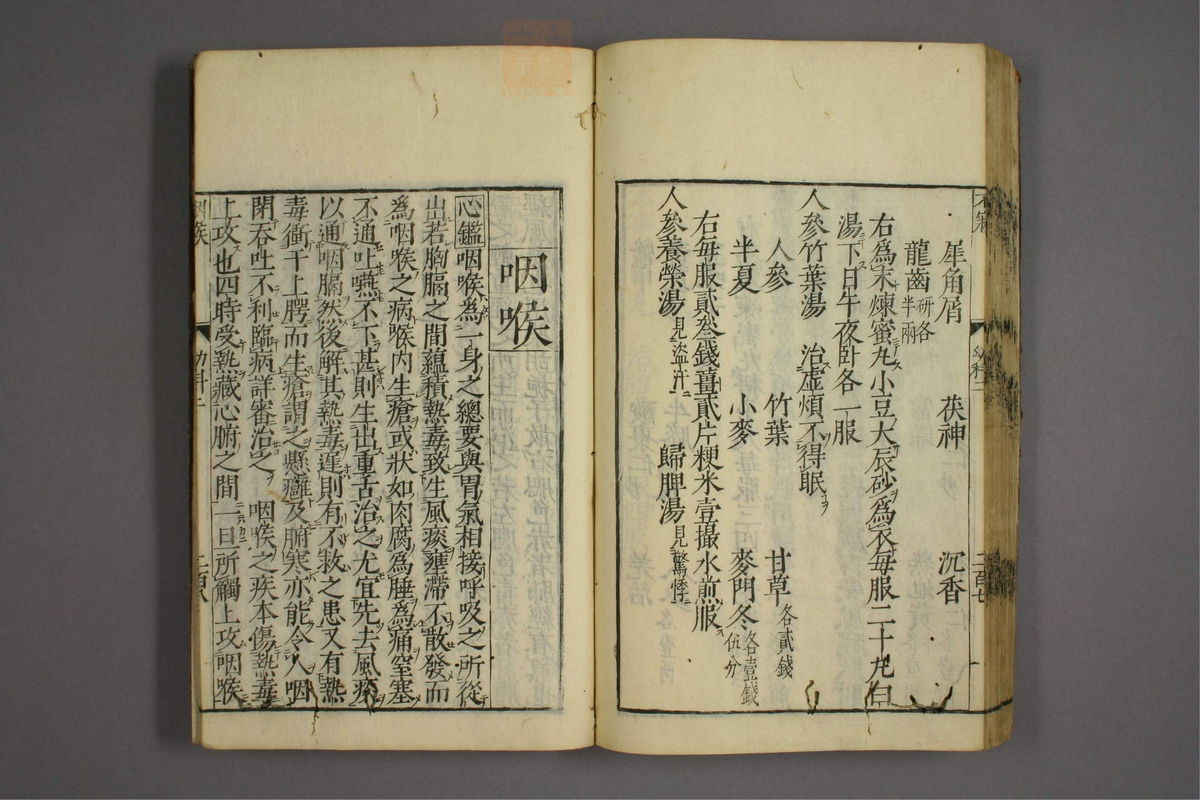 犀角屑 茯神 沉香
龍齒研各半兩
右爲末煉蜜丸小豆大辰砂爲衣每服二十丸白
湯下日午夜卧各一服
人參竹葉湯 治虛煩不得眠
人參 竹葉 甘草各貳錢
半夏 小麥 麥門冬各壹錢伍分
右每服貳叁錢薑貳片粳米壹撮水煎服
人參養榮湯見盜汗 歸脾湯見驚悸
不寐 幼科二 二百七
咽喉
心鑑咽喉爲一身之總要與胃氣相接呼吸之所從
出若胸膈之間蘊積熱毒致生風痰壅滯不散發而
爲咽喉之病喉内生瘡或狀如肉腐爲腫爲痛窒塞
不通吐嚥不下甚則生出重舌治之尤宜先去風痰
以通咽膈然後解其熱毒遲則有不救之患又有熱
毒衝于上腭而生瘡謂之懸癰及腑寒亦能令人咽
閉吞吐不利臨病詳審治之 咽喉之疾本傷熱毒
上攻也四時受熱藏心腑之間一曰所觸上攻咽喉
咽喉 幼科二 二百八